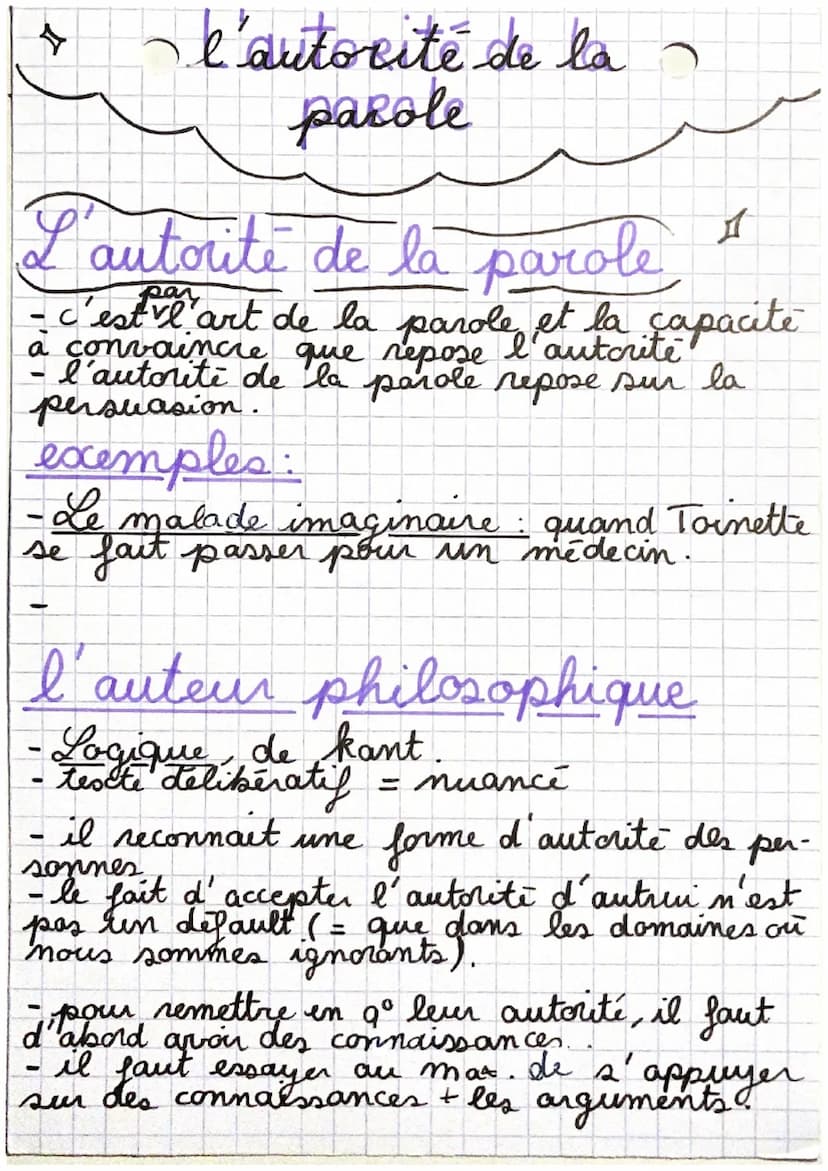 l'autorité de la
parole
L'autorité de la parole
par
- c'est l'art de la parole et la capacité
à convaincre que repose l'autorité
- l'autorité de la parole repose sur la
persuasion.
exemples :
- Le malade imaginaire : quand Toinette
se fait passer pour un médecin.
-
l'auteur philosophique
- Logique, de kant.
- texte délibératif = nuancé
- il reconnait une forme d'autorité des per-
sonnes
- le fait d'accepter l'autorité d'autrui n'est
pas un défault (= que dans les domaines où
nous sommes ignorants).
- pour remettre en q° leur autorité, il faut
d'abord avoir des connaissances.
- il faut essayer au max. de s'appuyer
sur des connaissances + les arguments.